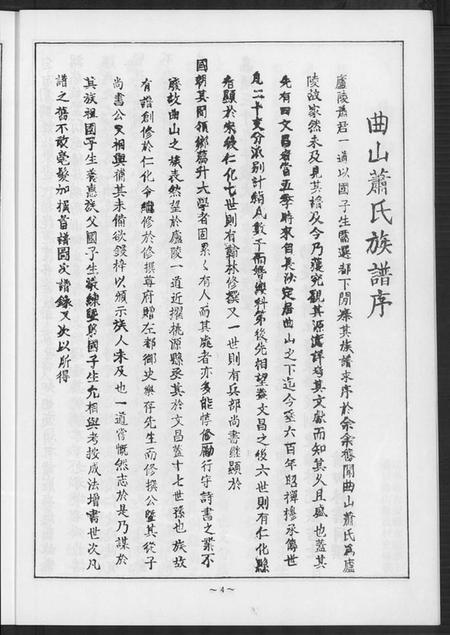 曲山蕭氏族譜序
廬陵蕭君一道以國子生需選部下間奉其族譜求序於余余舊聞曲山蕭氏為廬
陵故家然未及見其譜及今乃獲究觀其源流詳考其文獻而知其久且盛也蓋其
先有曰文昌者當五季時來自長沙定居曲山之下迄今至六百年昭穆承傳世
見二十支分派別計緡凡數千而簪纓科第後先相望蓋文昌之後六世則有仁化縣
者顯於宋後仁化七世則有翰林修撰又一世則有兵部尚書繼顯於
國朝其間領鄉薦升大學者固累々有人而其處者亦多能惇修勵行守詩書之業不
廢故曲山之族表然望於廬陵一道近擢桃源縣丞其於文昌蓋十七世孫也族故
有譜創修於仁化令繼修於修撰尊府贈在都御史樂存先生而修撰公暨其從子
尚書公又相與補其未備欲鋟梓以頒示族人未及也一道嘗慨然志於是乃謀於
其族祖國子生養惠族父國子生議練暨弟國子生允相與考按成法增書世次凡
譜之舊不敢毫髮加損首譜圖次譜錄又次以所得
~4~